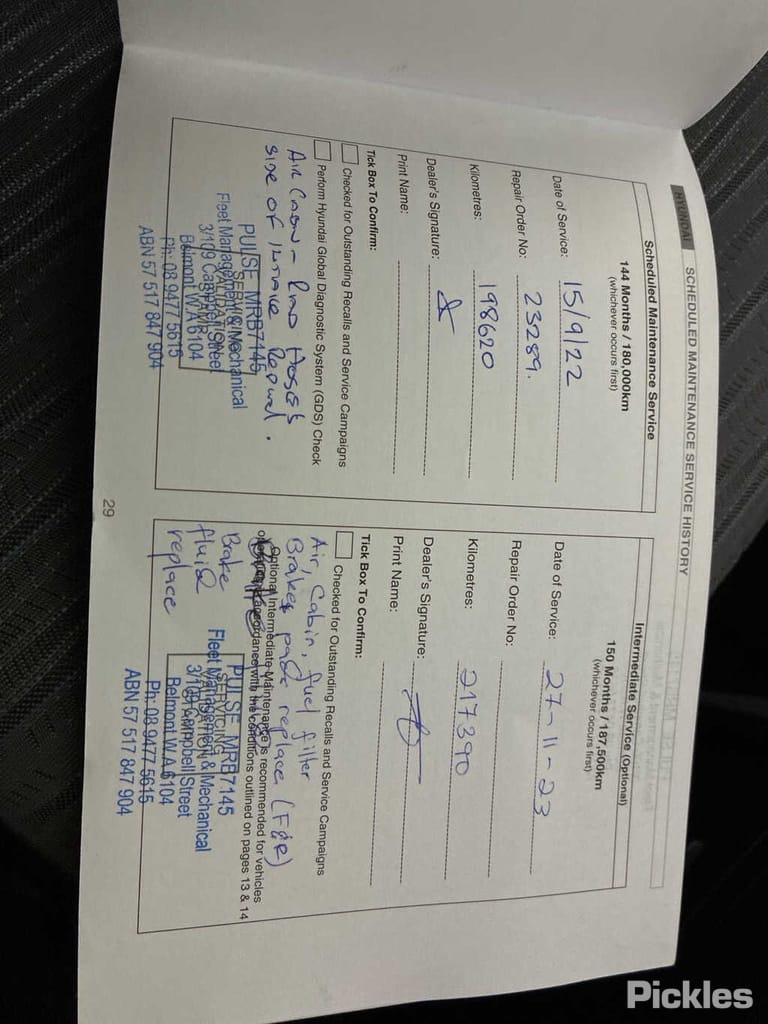 HYUNDAI SCHEDULED MAINTENANCE SERVICE HISTORY
Scheduled Maintenance Service
144 Months / 180,000km
(whichever occurs first)
Date of Service: 15/9/22
Repair Order No: 23289.
Kilometres: 198620
Dealer's Signature:
Print Name:
Tick Box To Confirm:
Checked for Outstanding Recalls and Service Campaigns
Perform Hyundai Global Diagnostic System (GDS) Check
Hoses
size of
PULSE MRB7145
Fleet Management & Mechanical
3/109 Campbell Street
Belmont W.A 6104
Ph: 08 9477 5615
ABN 57 517 847 904
Intermediate Service (Optional)
150 Months / 187,500km
(whichever occurs first)
Date of Service: 27-11-23
Repair Order No:
Kilometres: 217390
Dealer's Signature:
Print Name:
Tick Box To Confirm:
Checked for Outstanding Recalls and Service Campaigns
Air, Cabin, fuel filter
Brakes pads replace (F&R)
Optional Intermediate Maintenance is recommended for vehicles
in accordance with the conditions outlined on pages 13 & 14
Brake
fluid
replace
PULSE MRB7145
SERVICING
Fleet Management & Mechanical
3/109 Campbell Street
Belmont W.A 6104
Ph: 08 9477 5615
ABN 57 517 847 904
29
Pickles